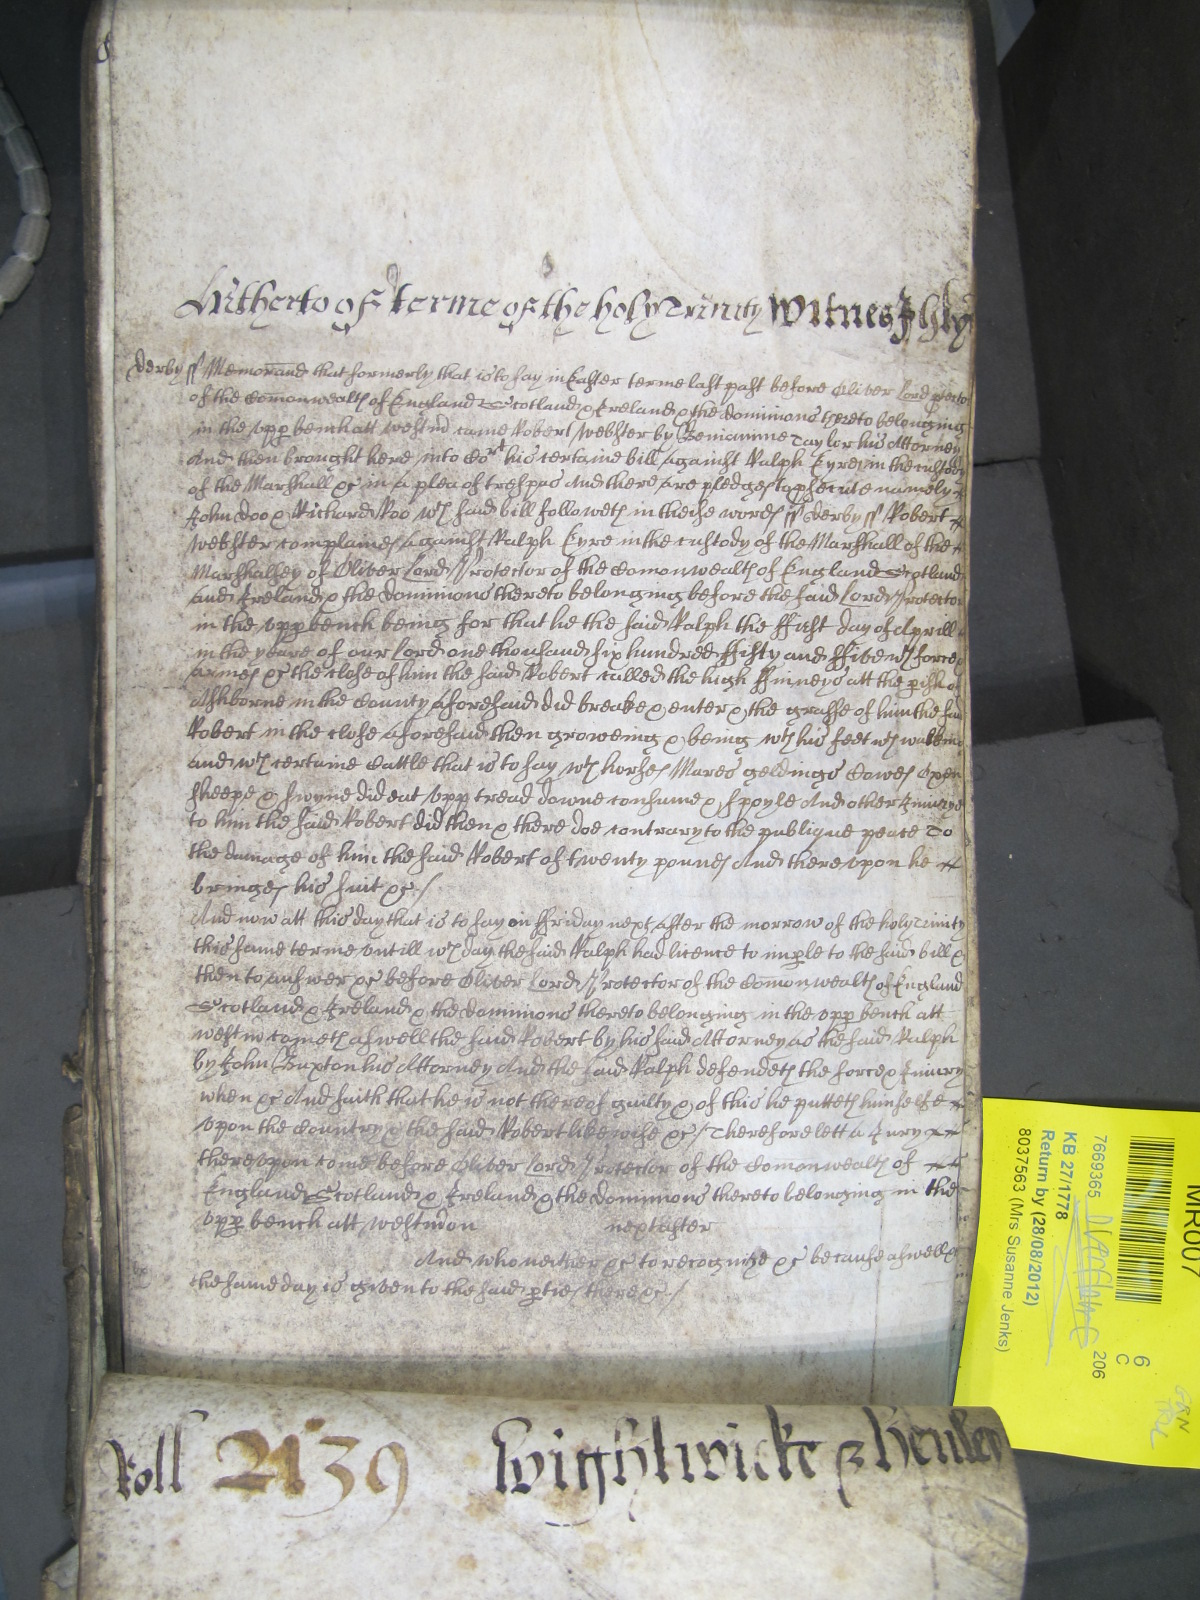 Hitherto of terme of the holy Trinity Witnes
derby ss Memorand that formerly that is to say in Easter terme last past before Oliver Lord
of the Com̄onwealth of England Scotland & Ireland & the dominions thereto belonging
in the upp bench att westm̄ came Robert Webster by Beniamine Taylor his Attorney
And then brought here into Cort his certaine bill against Ralph Eyre in the custody
of the Marshall &c in a plea of trespas And there are pledges to psecute namely
John doo & Richard Roo wch said bill followeth in theise words ss derby ss Robert
Webster complaines against Ralph Eyre in the custody of the Marshall of the
Marshalsey of Oliver Lord Protector of the Comonwealth of England Scotland
and Ireland & the dominions thereto belonging before the said Lord Protector
in the upp bench being for that he the said Ralph the ffirst day of Aprill
in the yeare of our Lord one thousand six hundred ffifty and ffive wth force &
armes &c the close of him the said Robert called the high ffinneys att the pish of
Ashborne in the County aforesaid did breake & enter & the grasse of him the said
Robert in the close aforesaid then groweing & being wth his feet wth walking
and wth certaine Cattle that is to say wth horses Mares geldings Cowes Oxen
sheepe & swyne did eat upp tread downe consume & spoyle And other Iniuryes
to him the said Robert did then & there doe contrary to the publique peace To
the damage of him the said Robert of twenty pounds And thereupon he
bringes his suit &c /
And now att this day that is to say on ffriday next after the morrow of the holy Trinity
this same terme untill wch day the said Ralph had licence to imple to the said bill &
then to answer &c before Oliver Lord Protector of the Com̄onwealth of England
Scotland & Ireland & the dominions thereto belonging in the upp bench att
westm̄ cometh aswell the said Robert by his said Attorney as the said Ralph
by John Buxton his Attorney And the said Ralph defendeth the force & Iniury
when &c And saith that he is not thereof guilty & of this he putteth himselfe
upon the Country & the said Robert likewise &c / Therefore lett a Jury
thereupon come before Oliver Lord Protector of the Comonwealth of
England Scotland & Ireland & the dominions thereto belonging in the
upp bench att westm̄ on next after
And who neither &c to recognize &c because aswell &c
the same day is given to the said pties there &c /
Roll 2139 Wightwicke & Henley
MR007
7669365
206
6
C
KB 27/1778
Return by (28/08/2012)
8037563 (Mrs Susanne Jenks)